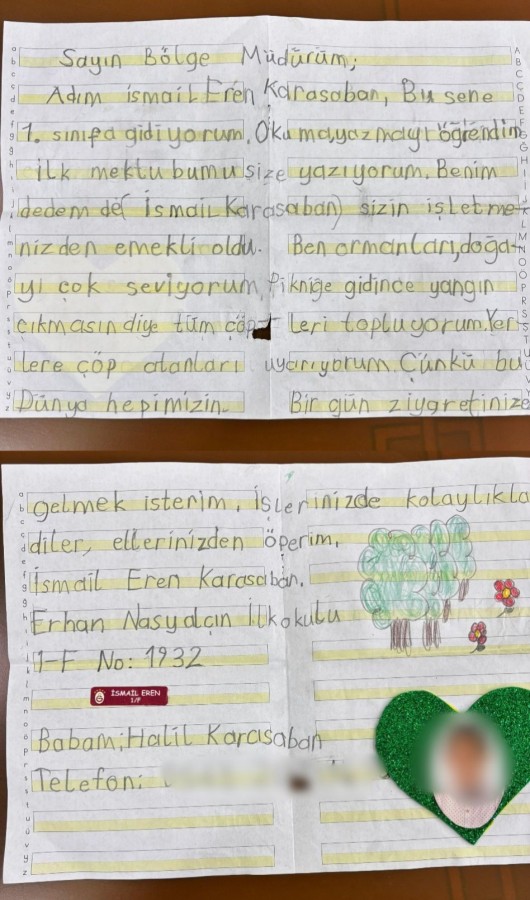 Sayın Bölge Müdürüm;
Adım İsmail Eren Karasaban, Bu sene
1. sınıfa gidiyorum. Okuma,yazmayı öğrendim
İlk mektubumu size yazıyorum. Benim
dedem de( İsmail Karasaban) sizin işletme-
nizden emekli oldu. Ben ormanları,doğa-
yı çok seviyorum. Pikniğe gidince yangın
çıkmasın diye tüm çöp-
leri topluyorum. Yer-
lere çöp atanları uyarıyorum. Çünkü bu
Dünya hepimizin. Bir gün ziyaretinize
gelmek isterim. İşlerinizde kolaylıkla
diler, ellerinizden öperim.
İsmail Eren Karasaban.
Erhan Nasyalçın İlkokulu
1-F No: 1932
İSMAİL EREN
1/F
Babam;Halil Karasaban
Telefon: